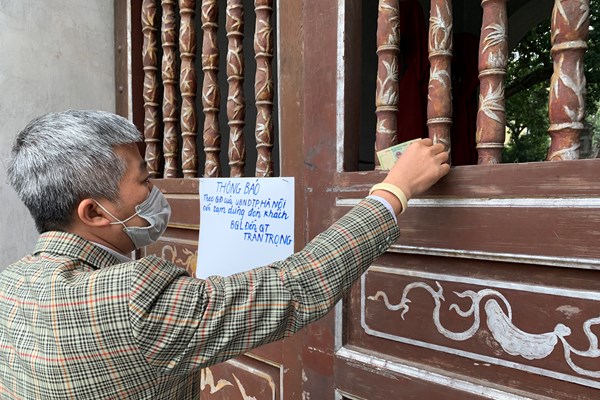 THÔNG BÁO
Theo QĐ của UBND TP. HÀ NỘI
đền tạm dừng đón khách
BQL ĐỀN QT
TRÂN TRỌNG